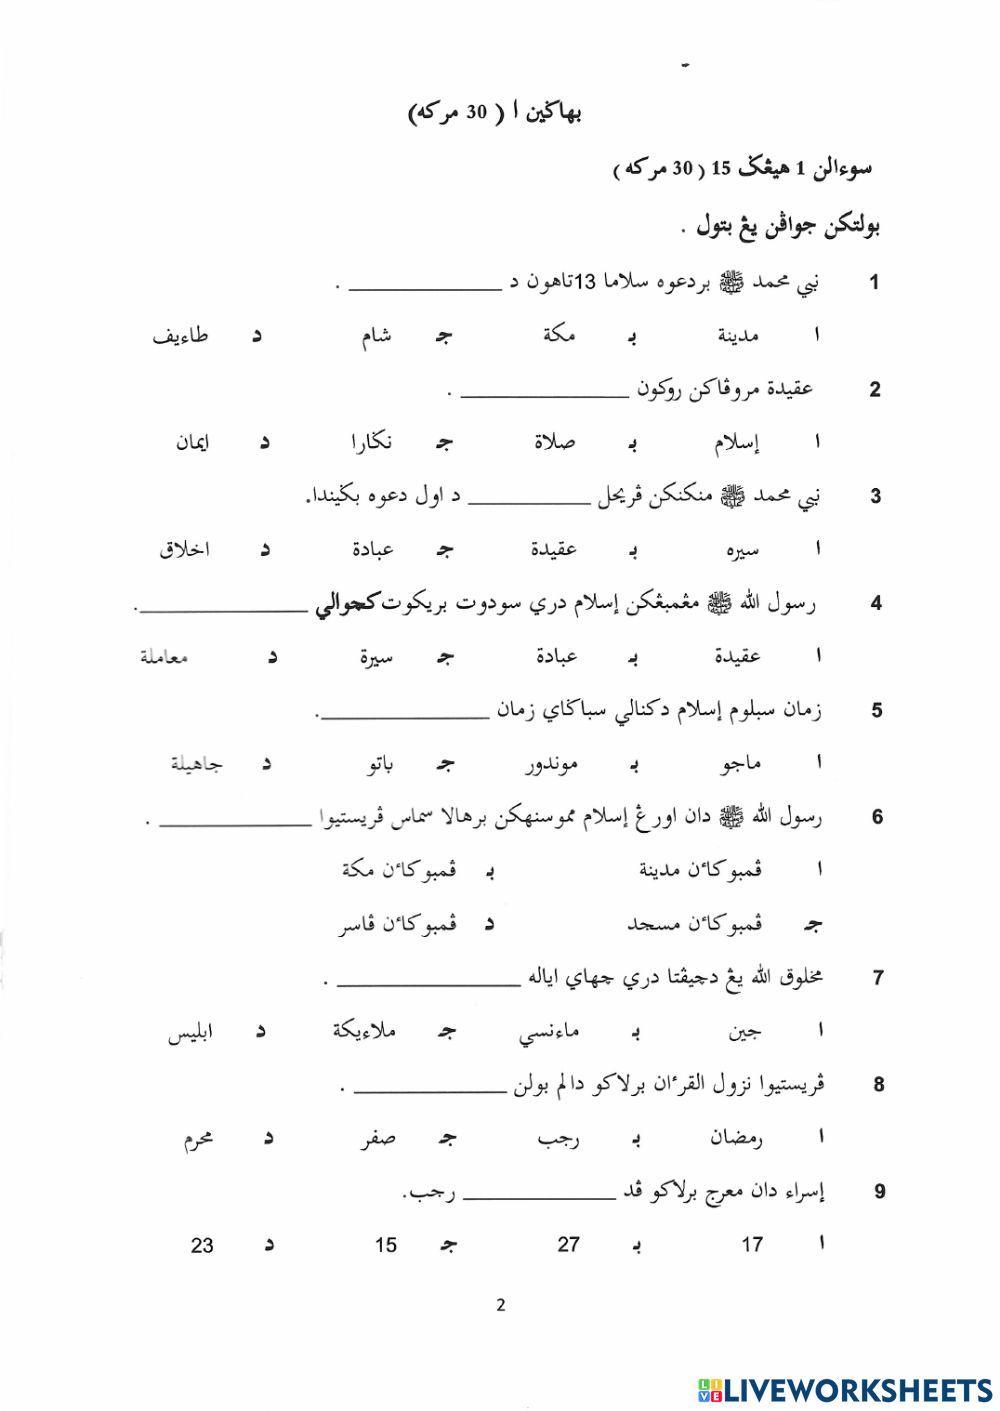 بهاݢين ا ( 30 مركه)
سوءالن 1 هيڠݢ 15 ( 30 مركه )
بولتكن جواڤن يڠ بتول .
1 نبي محمد ﷺ بردعوه سلاما 13تاهون د ______________ .
ا مدينة ب مكة ج شام د طاءيف
2 عقيدة مروڤاكن روكون ______________ .
ا إسلام ب صلاة ج نݢارا د ايمان
3 نبي محمد ﷺ منكنكن ڤريحل ______________ د اول دعوه بݢيندا.
ا سيره ب عقيدة ج عبادة د اخلاق
4 رسول الله ﷺ مڠمبڠكن إسلام دري سودوت بريكوت كچوالي ______________.
ا عقيدة ب عبادة ج سيرة د معاملة
5 زمان سبلوم إسلام دكنالي سباݢاي زمان ______________.
ا ماجو ب موندور ج باتو د جاهيلة
6 رسول الله ﷺ دان اورڠ إسلام مموسنهكن برهالا سماس ڤريستيوا ______________ .
ا ڤمبوكاءن مدينة ب ڤمبوكاءن مكة
ج ڤمبوكاءن مسجد د ڤمبوكاءن ڤاسر
7 مخلوق الله يڠ دچيڤتا دري چهاي اياله ______________ .
ا جين ب ماءنسي ج ملاءيكة د ابليس
8 ڤريستيوا نزول القرءان برلاكو دالم بولن ______________ .
ا رمضان ب رجب ج صفر د محرم
9 إسراء دان معرج برلاكو ڤد ______________ رجب.
ا 17 ب 27 ج 15 د 23
2
LIVE LIVEWORKSHEETS